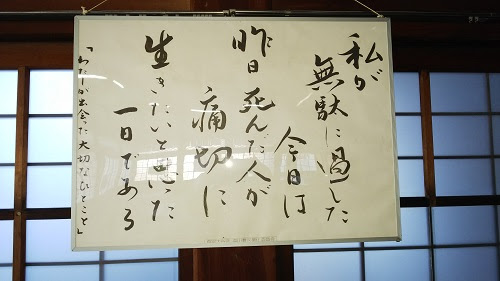 私が
無駄に過した
今日は
昨日死んだ人が
痛切に
生きたいと思った
一日である
「わたしが出会った大切なひとこと」